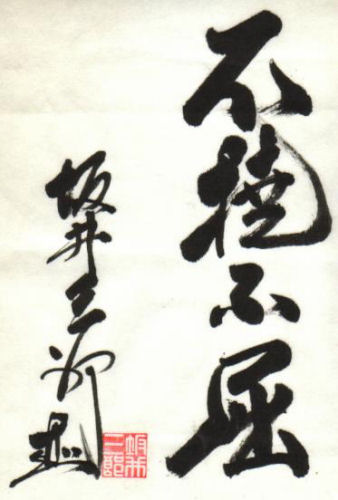 不撓不屈
坂井三郎
坂井
三郎